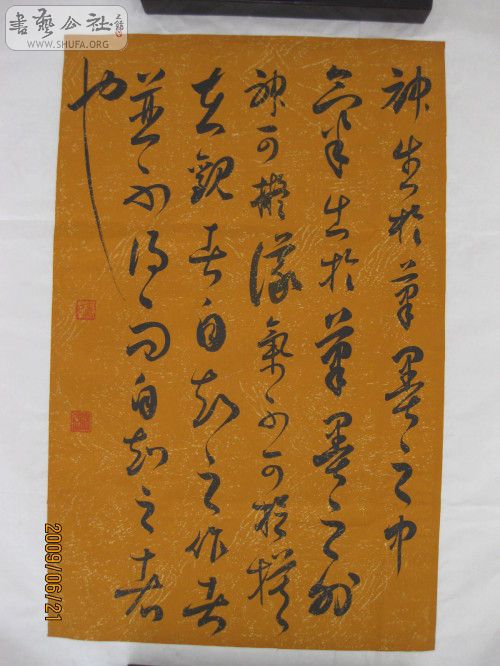 書藝公社
WWW.SHUFA.ORG
神生於筆墨之中
氣出於筆墨之外
神可擬議氣不可捉摸
在觀者自知之作者
並不得而自知之者
也
2009/06/21